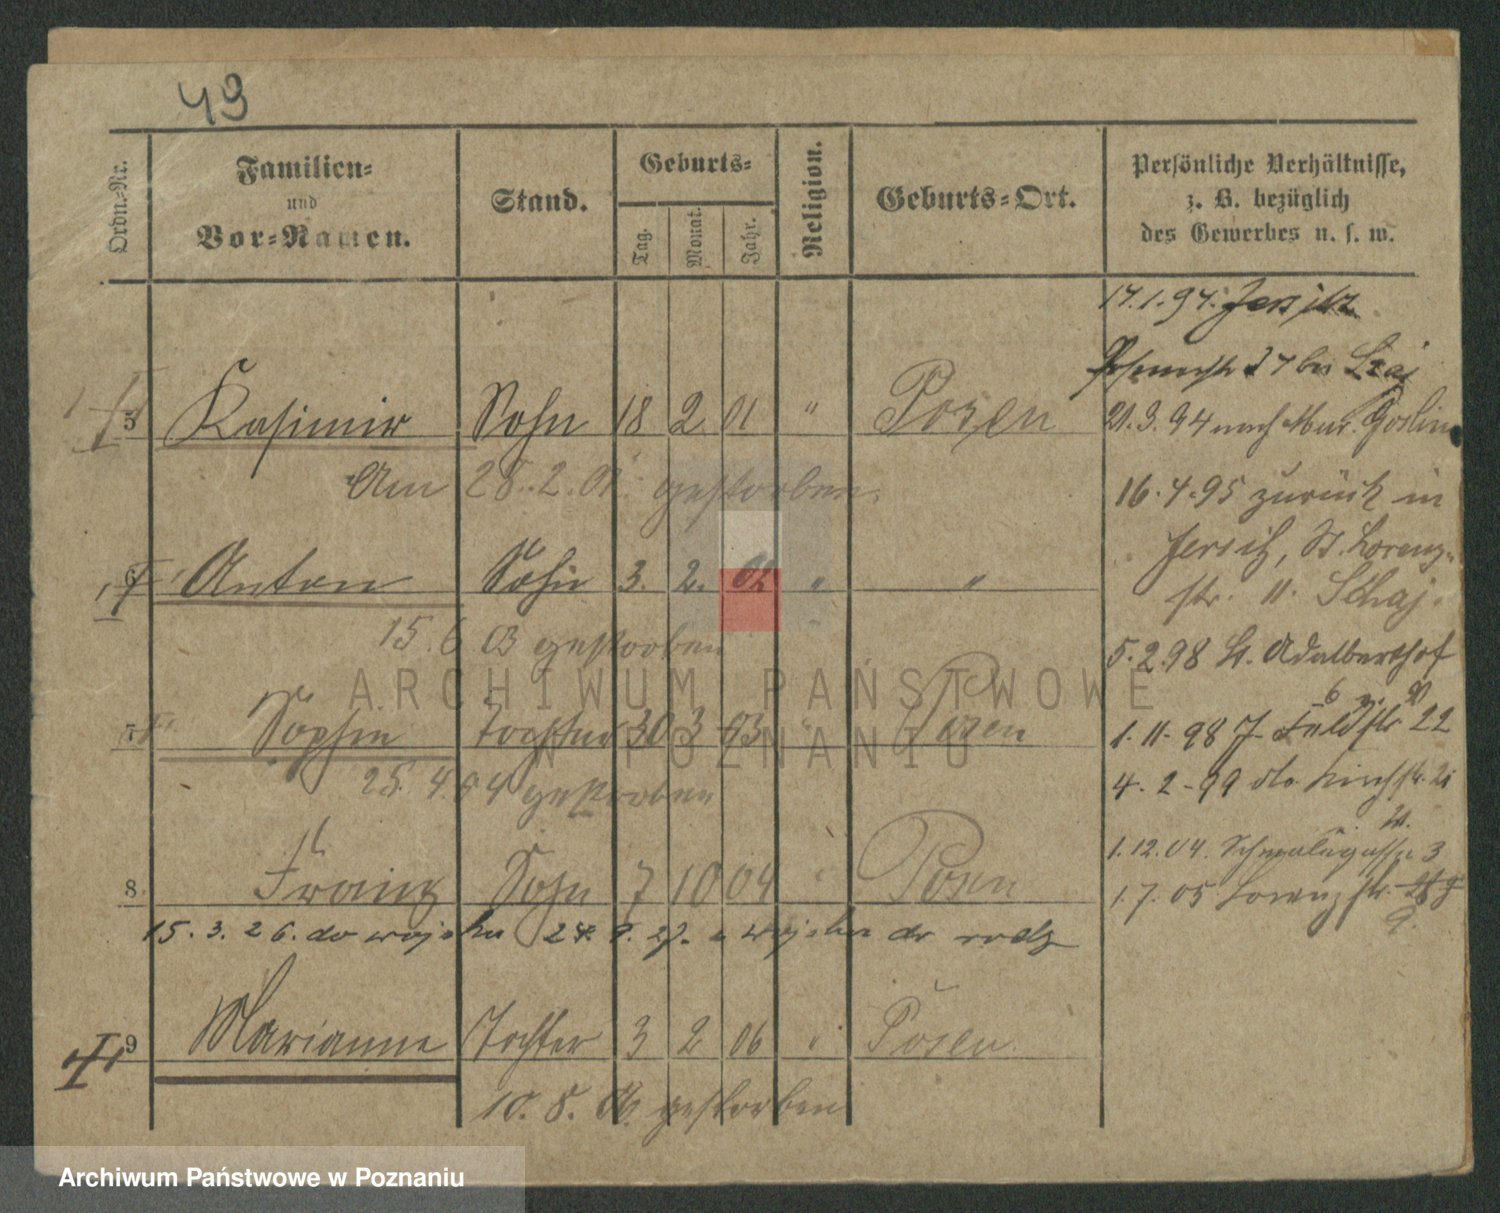 49
Ordn.-Nr.
Familien-
und
Vor-Namen.
Stand.
Geburts-
Tag.
Monat.
Jahr.
Religion.
Geburts-Ort.
Persönliche Verhältnisse,
z. B. bezüglich
des Gewerbes u. s. w.
5 Kasimir Sohn 18 2 01 " Posen
Am 28.2.01. gestorben.
6 Anton Sohn 3. 2. 02 " "
15.6 03 gestorben
7 Sophie Tochter 30 3 03 " Posen
25.4.04 gestorben
8 Franz Sohn 7 10 04 " Posen
15.3.26. do wojska 24. 9. 27. z wojska do
9 Marianne Tochter 3 2 06 " Posen.
10.8.06. gestorben
17.1.94. Jersitz
37 bei
21.3.94 nach Mur. Goslin
16.4.95 zurück in
Jersitz, St. Lorenz-
str. 11.
5.2.98 St. Adalberthof
1.11.98 J. Feldstr 22
4.2.99 do. Kirchstr. 21
1.12.04. 3
1.7.05 Lorenzstr.
9.
ARCHIWUM PAŃSTWOWE
W POZNANIU
Archiwum Państwowe w Poznaniu